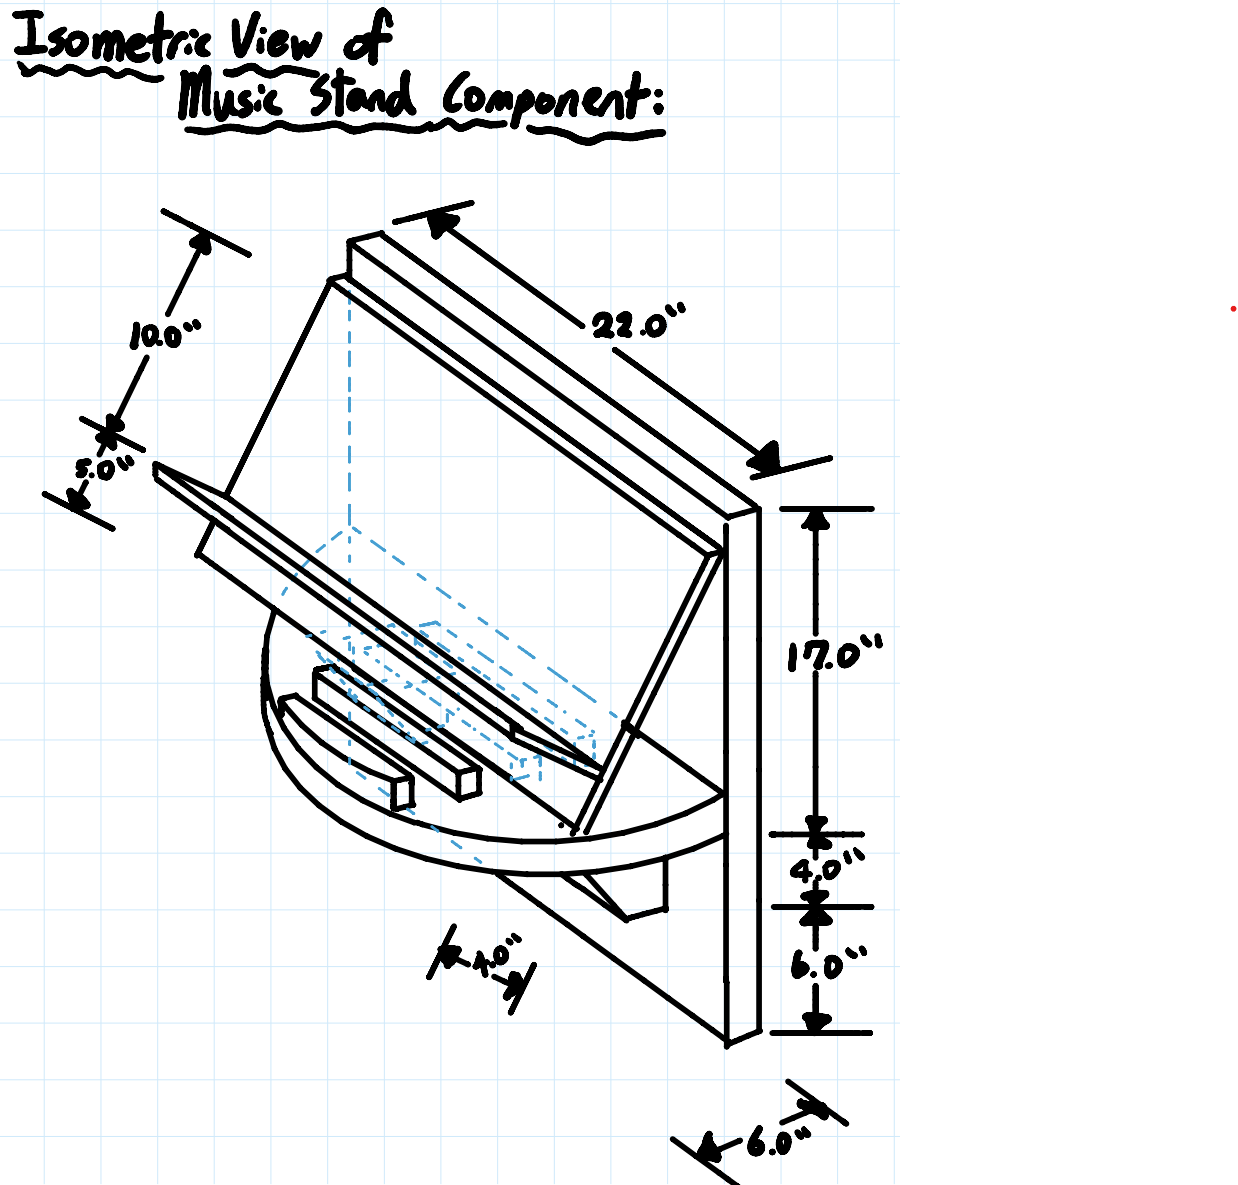 Isometric View of
Music Stand Component:
22.0"
10.0"
5.0"
17.0"
4.0"
6.0"
4.0"
6.0"